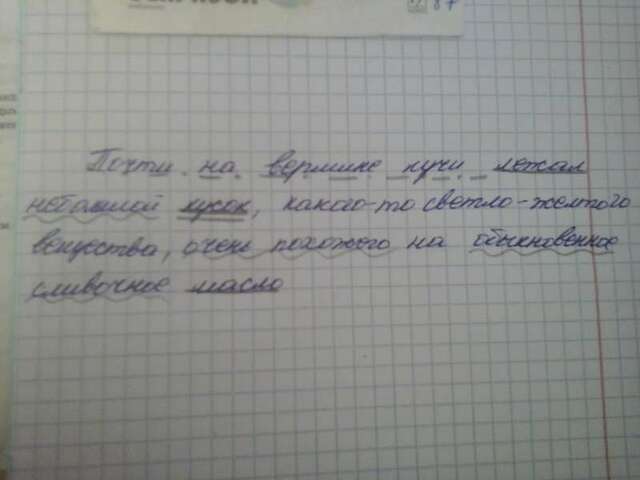 87
Почти на вершине кучи лежал
небольшой кусок, какао-то светло-желтого
вещества, очень похожего на обыкновенное
сливочное масло